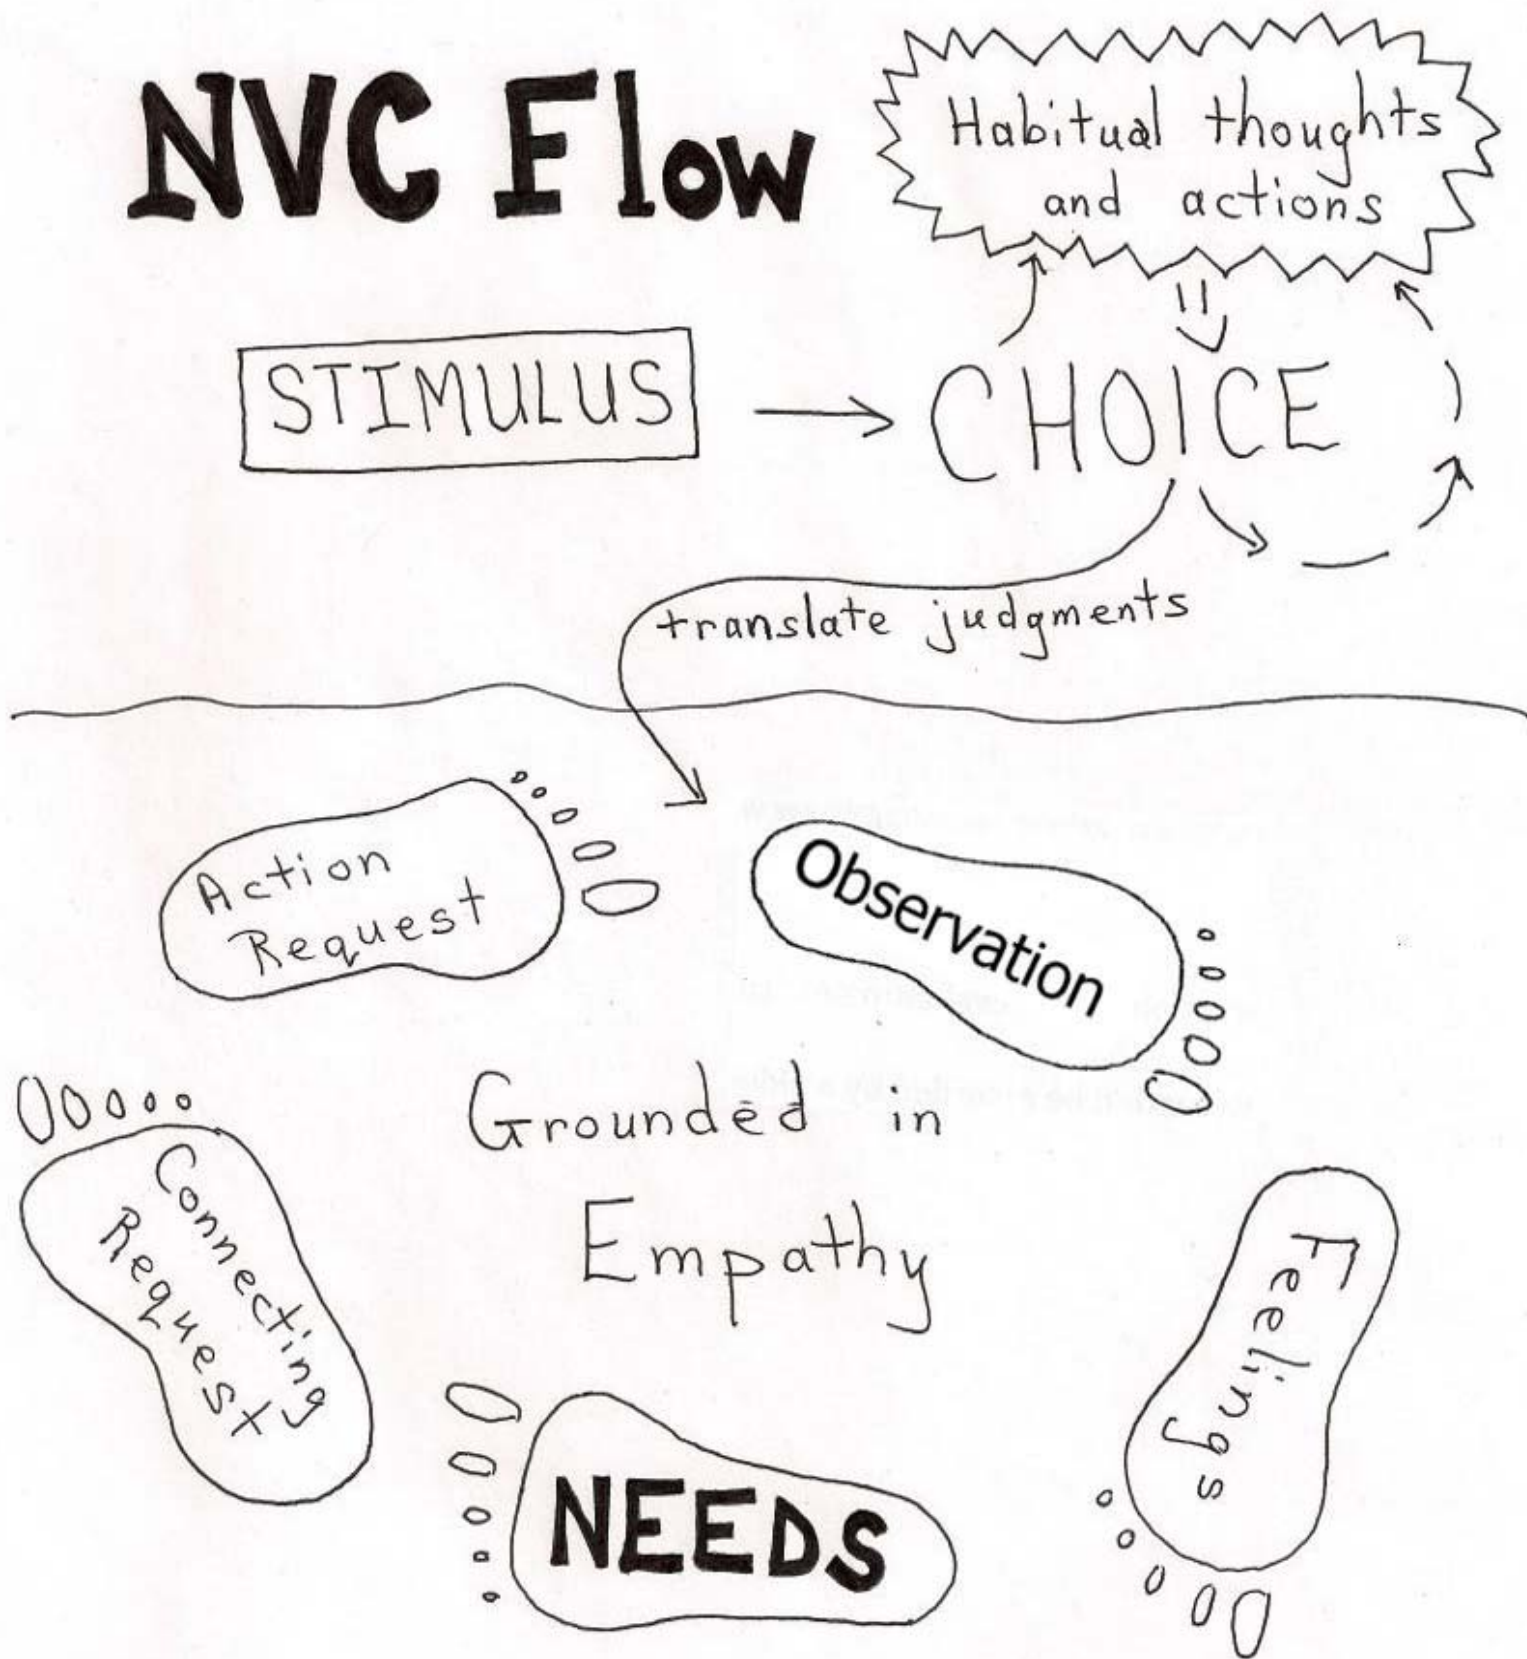 NVC Flow
Habitual thoughts
and actions
STIMULUS
CHOICE
translate judgments
Action
Request
Observation
Grounded in
Empathy
Connecting
Request
Feelings
NEEDS